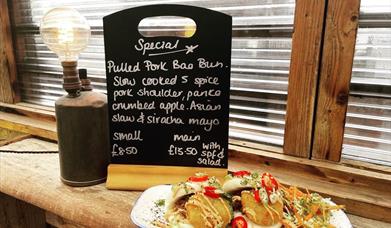 Special
Pulled Pork Bao Bun.
Slow cooked 5 spice
pork shoulder, panco
crumbed apple. Asian
slaw & siracha mayo
small main with
£8.50 £15.50 spf &
salad.